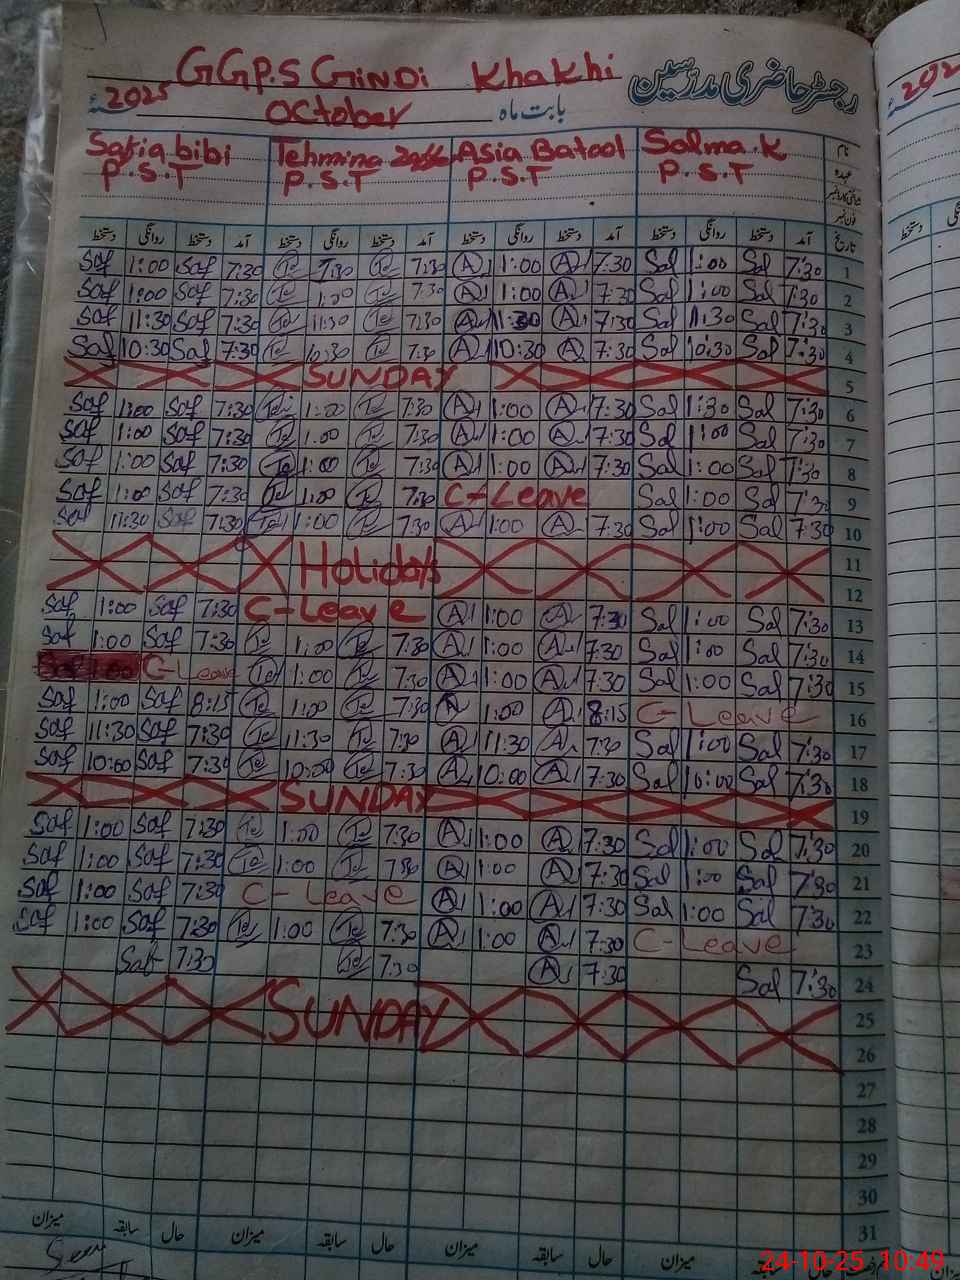 رجسٹر حاضری مدرسین
GGP.S GiNDi Khakhi
2025ء October بابت ماہ
Safia bibi Tehmina Asia Batool Salma.K نام
P.S.T P.S.T P.S.T P.S.T عہدہ
شناختی کارڈ نمبر
فون نمبر
دستخط روانگی دستخط آمد دستخط روانگی دستخط آمد دستخط روانگی دستخط آمد دستخط روانگی دستخط آمد تاریخ
Saf 1:00 Saf 7:30 Te 1:30 Te 7:30 A 1:00 A 7:30 Sal 1:00 Sal 7:30 1
Saf 1:00 Saf 7:30 Te 1:00 Te 7:30 A 1:00 A 7:30 Sal 1:00 Sal 7:30 2
Saf 11:30 Saf 7:30 Te 11:30 Te 7:30 A 11:30 A 7:30 Sal 11:30 Sal 7:30 3
Saf 10:30 Saf 7:30 Te 10:30 Te 7:30 A 10:30 A 7:30 Sal 10:30 Sal 7:30 4
SUNDAY 5
Saf 1:00 Saf 7:30 Te 1:00 Te 7:30 A 1:00 A 7:30 Sal 1:30 Sal 7:30 6
Saf 1:00 Saf 7:30 Te 1:00 Te 7:30 A 1:00 A 7:30 Sal 1:00 Sal 7:30 7
Saf 1:00 Saf 7:30 Te 1:00 Te 7:30 A 1:00 A 7:30 Sal 1:00 Sal 7:30 8
Saf 1:00 Saf 7:30 Te 1:00 Te 7:30 C-Leave Sal 1:00 Sal 7:30 9
Saf 11:30 Saf 7:30 Te 1:00 Te 7:30 A 1:00 A 7:30 Sal 1:00 Sal 7:30 10
Holidays 11
12
Saf 1:00 Saf 7:30 C-Leave A 1:00 A 7:30 Sal 1:00 Sal 7:30 13
Saf 1:00 Saf 7:30 Te 1:00 Te 7:30 A 1:00 A 7:30 Sal 1:00 Sal 7:30 14
Saf 1:00 C-Leave Te 1:00 Te 7:30 A 1:00 A 7:30 Sal 1:00 Sal 7:30 15
Saf 1:00 Saf 8:15 Te 1:00 Te 7:30 A 1:00 A 8:15 C-Leave 16
Saf 11:30 Saf 7:30 Te 11:30 Te 7:30 A 11:30 A 7:30 Sal 1:00 Sal 7:30 17
Saf 10:00 Saf 7:30 Te 10:00 Te 7:30 A 10:00 A 7:30 Sal 10:00 Sal 7:30 18
SUNDAY 19
Saf 1:00 Saf 7:30 Te 1:00 Te 7:30 A 1:00 A 7:30 Sal 1:00 Sal 7:30 20
Saf 1:00 Saf 7:30 Te 1:00 Te 7:30 A 1:00 A 7:30 Sal 1:00 Sal 7:30 21
Saf 1:00 Saf 7:30 C-Leave A 1:00 A 7:30 Sal 1:00 Sal 7:30 22
Saf 1:00 Saf 7:30 Te 1:00 Te 7:30 A 1:00 A 7:30 C-Leave 23
Saf 7:30 Te 7:30 A 7:30 Sal 7:30 24
SUNDAY 25
26
27
28
29
30
31
میزان سابقہ حال میزان سابقہ حال میزان سابقہ حال میزان سابقہ
24-10-25 10:49
202
دستخط